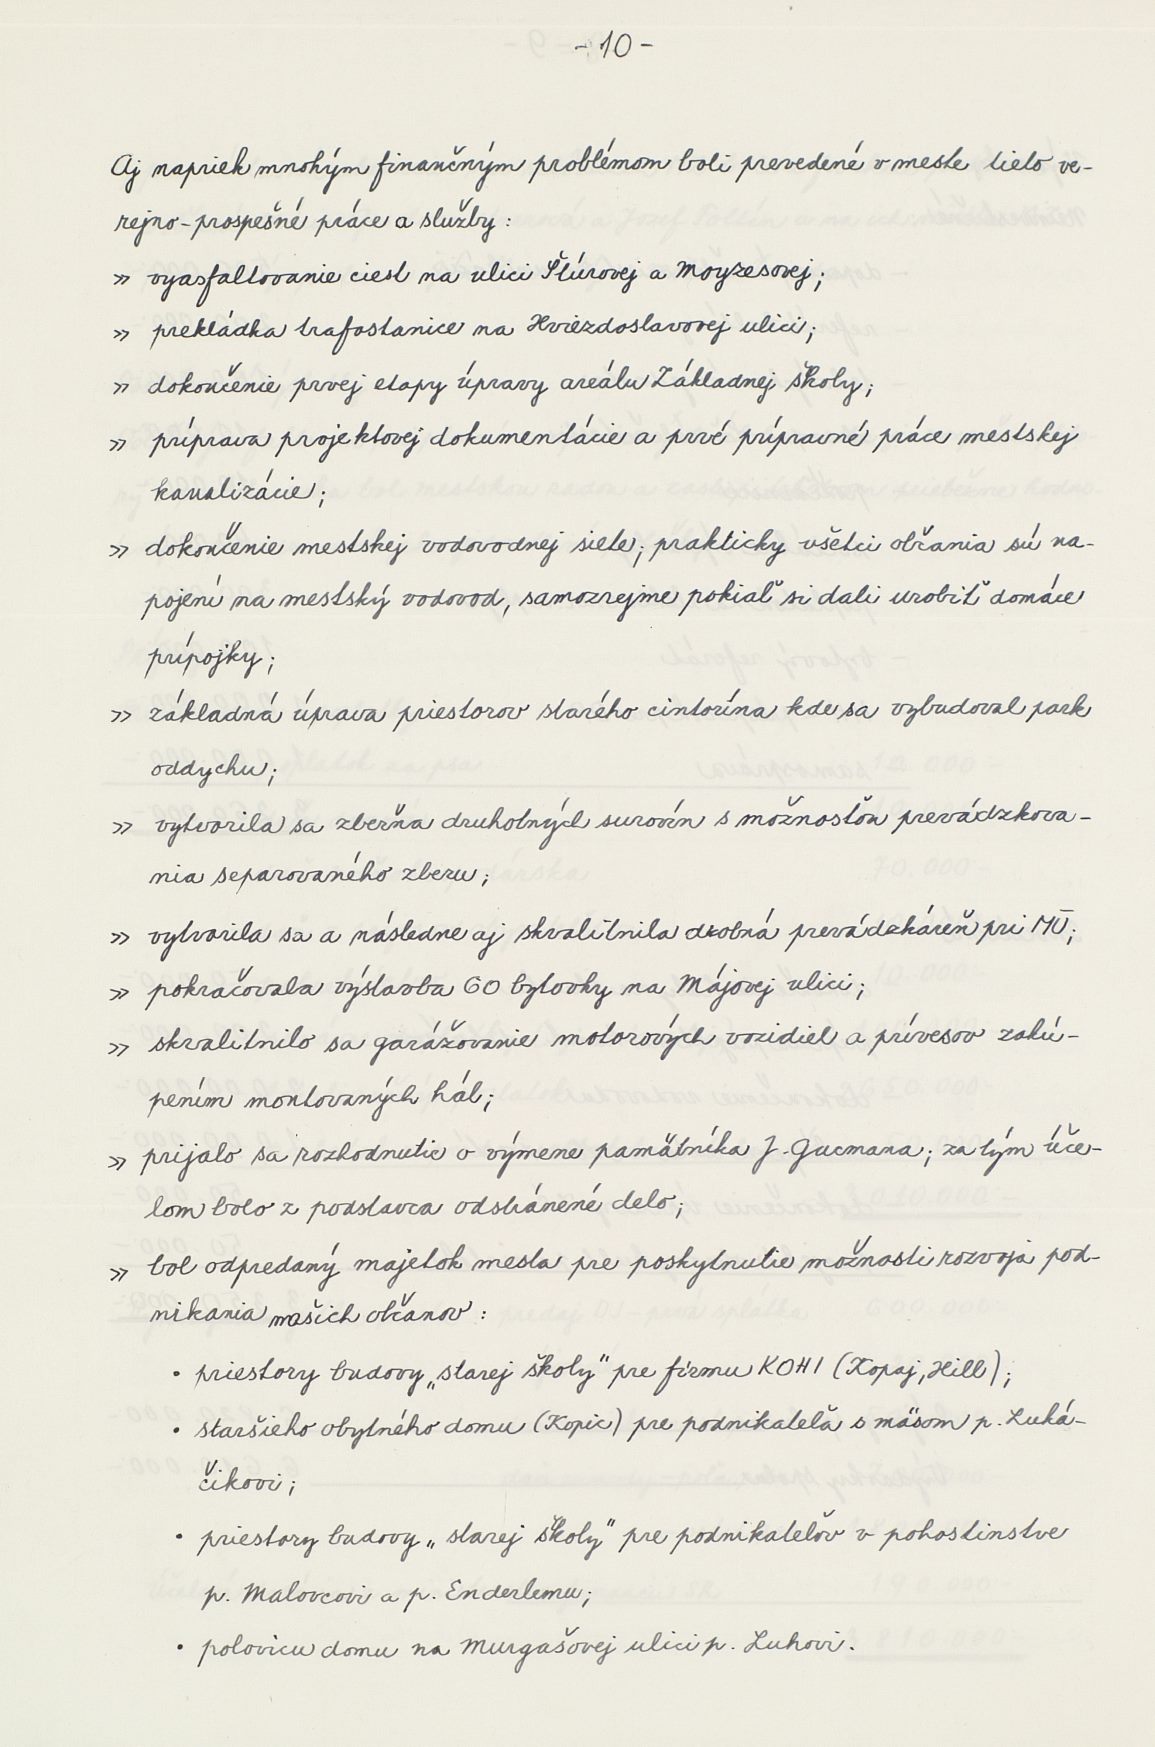 - 10 -
Aj napriek mnohým finančným problémom boli prevedené v meste tieto ve-
rejno-prospešné práce a služby:
» vyasfaltovanie ciest na ulici Štúrovej a Moyzesovej;
» prekládka trafostanice na Hviezdoslavovej ulici;
» dokončenie prvej etapy úpravy areálu Základnej školy;
» príprava projektovej dokumentácie a prvé prípravné práce mestskej
kanalizácie;
» dokončenie mestskej vodovodnej siete; prakticky všetci občania sú na-
pojení na mestský vodovod, samozrejme pokiaľ si dali urobiť domáce
prípojky;
» základná úprava priestorov starého cintorína kde sa vybudoval park
oddychu;
» vytvorila sa zberňa druhotných surovín s možnosťou prevádzkova-
nia separovaného zberu;
» vytvorila sa a následne aj skvalitnila drobná prevádzkáreň pri MÚ;
» pokračovala výstavba 60 bytovky na Májovej ulici;
» skvalitnilo sa garážovanie motorových vozidiel a prívesov zakú-
pením montovaných hál;
» prijalo sa rozhodnutie o výmene pamätníka J. Gucmana; za tým úče-
lom bolo z podstavca odstránené delo;
» bol odpredaný majetok mesta pre poskytnutie možnosti rozvoja pod-
nikania našich občanov:
• priestory budovy „starej školy" pre firmu KOHI (Kopaj, Hill);
• staršieho obytného domu (Kopic) pre podnikateľa s mäsom p. Luká-
čikovi;
• priestory budovy „starej školy" pre podnikateľov v pohostinstve
p. Malovcovi a p. Enderlemu;
• polovicu domu na Murgašovej ulici p. Luhovi.